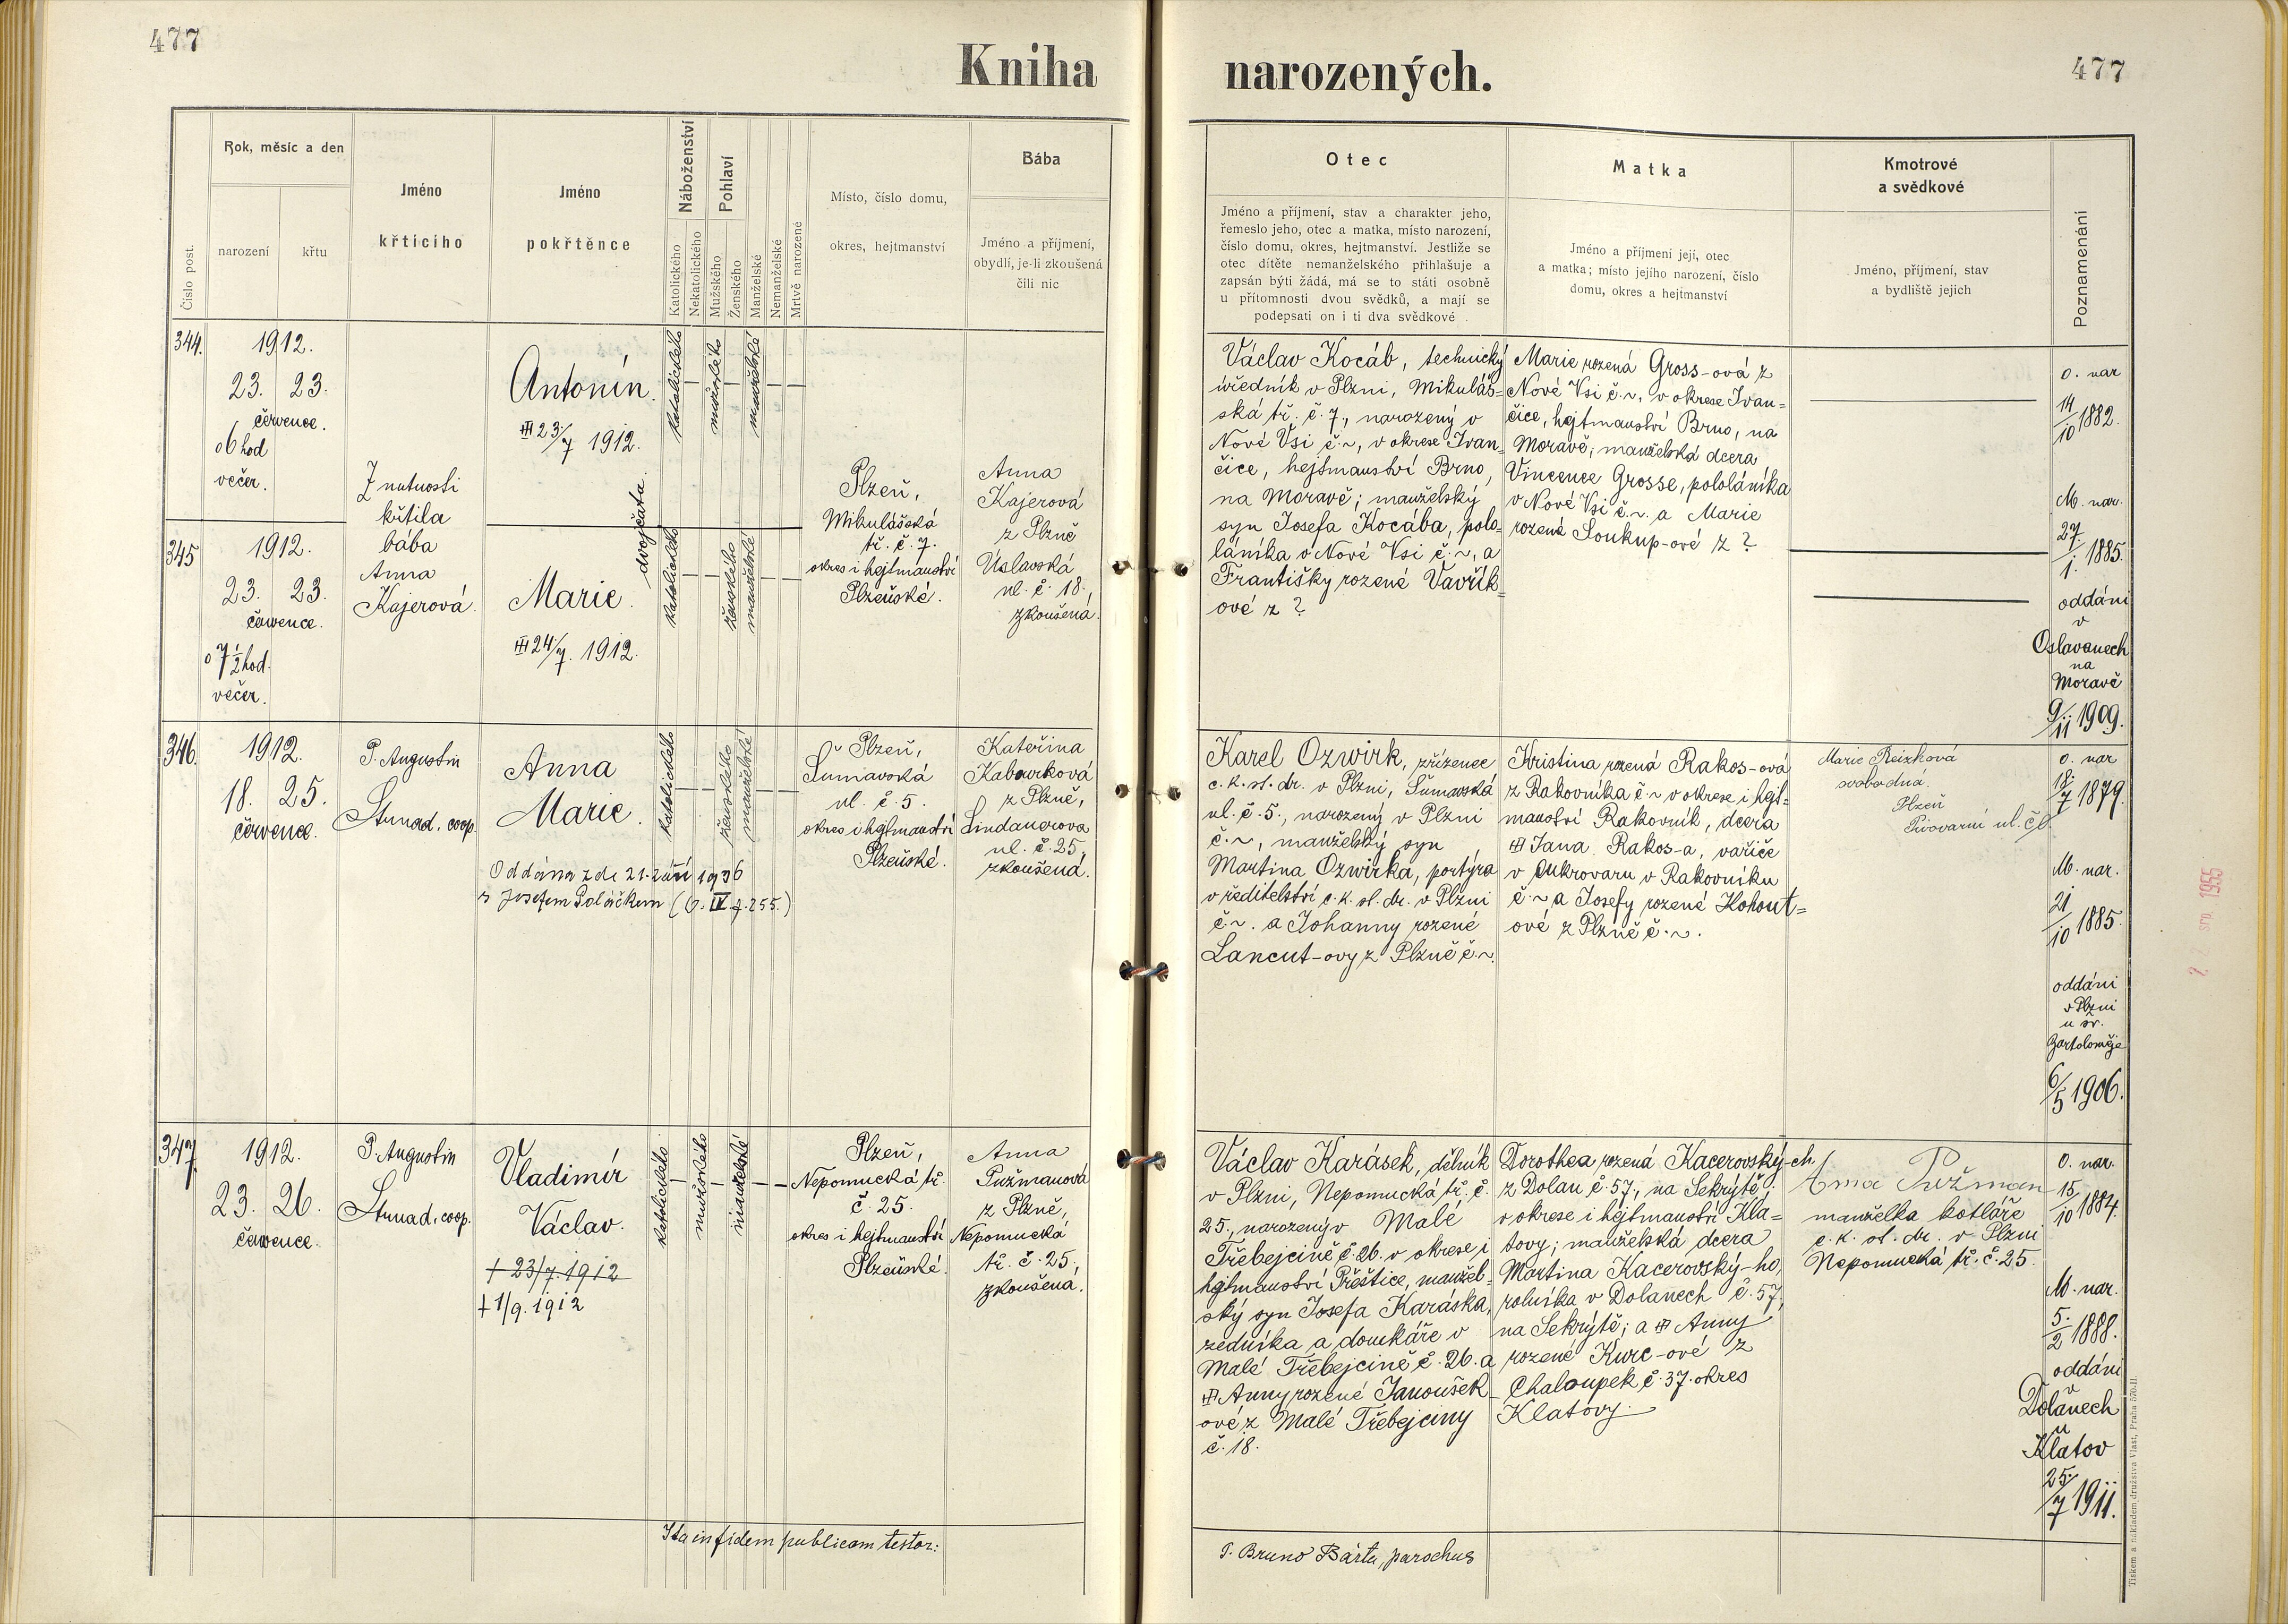 477
Kniha
narozených.
477
Číslo post.
Rok, měsíc a den
narození
křtu
Jméno
křtícího
Jméno
pokřtěnce
Náboženství
Katolického
Nekatolického
Pohlaví
Mužského
Ženského
Manželské
Nemanželské
Mrtvě narozené
Místo, číslo domu,
okres, hejtmanství
Bába
Jméno a příjmení,
obydlí, je-li zkoušená
čili nic
Otec
Jméno a příjmení, stav a charakter jeho,
řemeslo jeho, otec a matka, místo narození,
číslo domu, okres, hejtmanství. Jestliže se
otec dítěte nemanželského přihlašuje a
zapsán býti žádá, má se to státi osobně
u přítomnosti dvou svědků, a mají se
podepsati on i ti dva svědkové
Matka
Jméno a příjmení její, otec
a matka; místo jejího narození, číslo
domu, okres a hejtmanství
Kmotrové
a svědkové
Jméno, příjmení, stav
a bydliště jejich
Poznamenání
344.
1912.
23. 23.
července.
o 6 hod
večer.
Antonín.
23/7 1912.
katolického
mužského
manželské
dvojčata
345
1912.
23. 23.
července.
o 7 1/2 hod.
večer.
Z nutnosti
křtila
bába
Anna
Kajerová.
Marie.
24/7. 1912.
katolického
ženského
manželské
Plzeň,
Mikulášská
tř. č. 7.
okres i hejtmanství
Plzeňské.
Anna
Kajerová
z Plzně
Úslavská
ul. č. 18,
zkoušená.
Václav Kocáb, technický
úředník v Plzni, Mikuláš=
ská tř. č. 7., narozený v
Nové Vsi č. ~, v okrese Ivan=
čice, hejtmanství Brno,
na Moravě; manželský
syn Josefa Kocába, polo=
láníka v Nové Vsi č. ~, a
Františky rozené Vavřík=
ové z ?
Marie rozená Gross-ová z
Nové Vsi č. ~, v okrese Ivan=
čice, hejtmanství Brno, na
Moravě; manželská dcera
Vincence Grosse, pololáníka
v Nové Vsi č. ~. a Marie
rozené Soukup-ové z ?
o. nar
14/10 1882.
M. nar.
27/1. 1885.
oddáni
v
Oslavanech
na
Moravě
9/11 1909.
346.
1912.
18. 25.
července.
P. Augustin
Strnad, coop.
Anna
Marie.
Oddána zde 21. září 1936
s Josefem Poláčkem (6. IV f. 255.)
katolického
ženského
manželské
Plzeň,
Šumavská
ul. č. 5.
okres i hejtmanství
Plzeňské.
Kateřina
Kabourková
z Plzně,
Lindauerova
ul. č. 25.
zkoušená.
Karel Ozwirk, zřízenec
c. k. st. dr. v Plzni, Šumavská
ul. č. 5., narozený v Plzni
č. ~, manželský syn
Martina Ozwirka, portýra
v ředitelství c. k. st. dr. v Plzni
č. ~. a Johanny rozené
Lancut-ovy z Plzně č. ~.
Kristina rozená Rakos-ová
z Rakovníka č. ~ v okrese i hejt=
manství Rakovník, dcera
Jana Rakos-a, vařiče
v cukrovaru v Rakovníku
č. ~ a Josefy rozené Kohout=
ové z Plzně č. ~.
Marie
svobodná
Plzeň
Pivovarní ul. č.
o. nar
18./7 1879.
M. nar.
21/10 1885.
oddáni
v Plzni
u sv.
Bartoloměje
6/5 1906.
1955
347
1912.
23. 26.
července.
P. Augustin
Strnad, coop.
Vladimír
Václav.
+ 23/7. 1912
+ 1/9. 1912
katolického
mužského
manželské
Plzeň,
Nepomucká tř.
č. 25.
okres i hejtmanství
Plzeňské.
Anna
Pužmanová
z Plzně,
Nepomucká
tř. č. 25.
zkoušená.
Václav Karásek, dělník
v Plzni, Nepomucká tř. č.
25., narozený v Malé
Třebejcině č. 26. v okrese i
hejtmanství Přeštice, manžel=
ský syn Josefa Karáska,
zedníka a domkáře v
Malé Třebejcině č. 26. a
Anny rozené Janoušek-
ové z Malé Třebejciny
č. 18.
Dorothea rozená Kacerovský-ch
z Dolan č. 57., na Sekrýtě
v okrese i hejtmanství Kla=
tovy; manželská dcera
Martina Kacerovský-ho,
rolníka v Dolanech č. 57,
na Sekrýtě; a Anny
rozené Kurc-ové z
Chaloupek č. 37. okres
Klatovy.
Anna Pužman
manželka kotláře
c. k. st. dr. v Plzni
Nepomucká tř. č. 25.
O. nar.
15/10 1884.
M. nar.
5./2 1888.
oddáni
v
Dolanech
u
Klatov
25./7 1911.
Ita in fidem publicam testor:
P. Bruno Bárta, parochus
Tiskem a nákladem družstva Vlast, Praha 570-II.